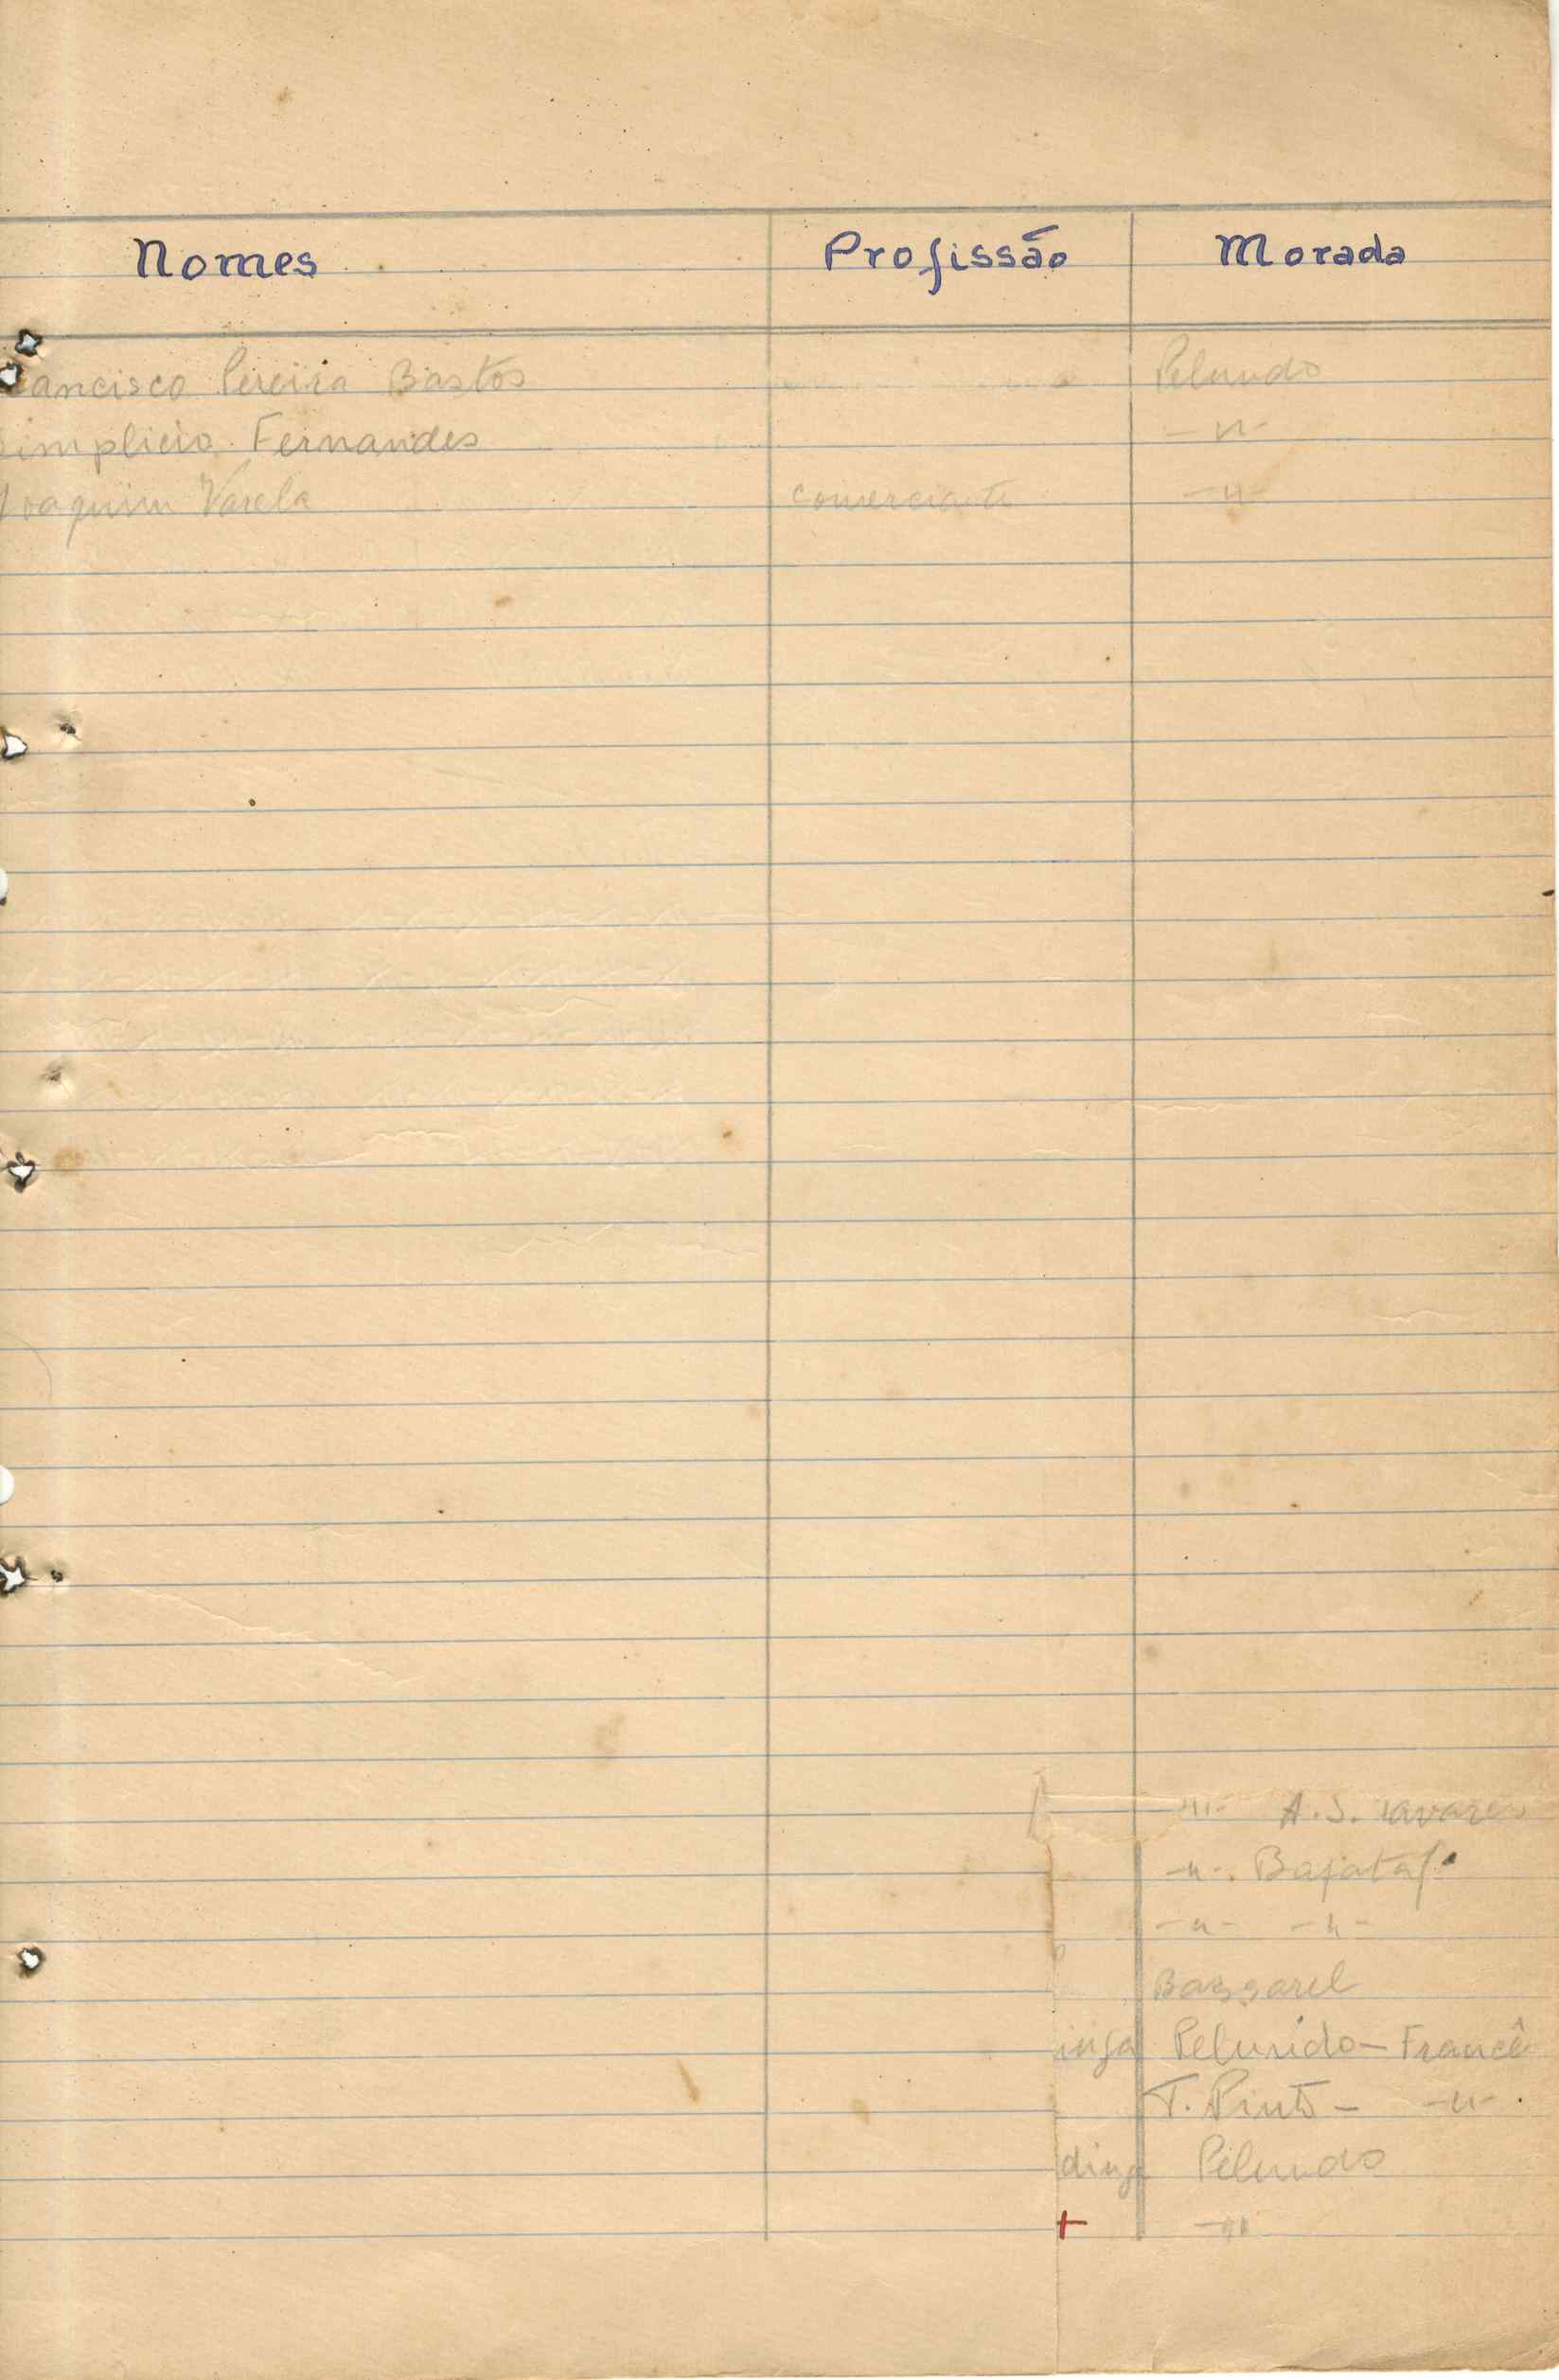 Nomes Profissão Morada
rancisco Pereira Bastos Pelundo
implicio Fernandes -n-
Joaquim Varela comerciante -n-
-n- A. S. Tavares
-n-. Bajataf.
-n- -n-
Bassarel
inga Pelundo - Francê
T. Pinto - -n-.
dinga Pelundo
+ -n-